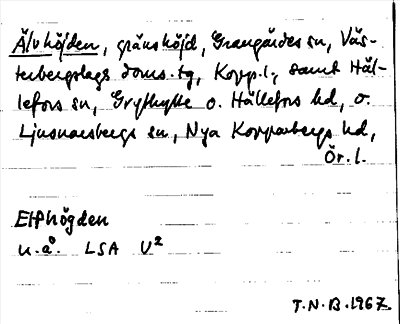 Älvhöjden, gränshöjd, Grangärdes sn, Väs-
terbergslags doms. tg, Kopp. l., samt Häl-
lefors sn, Grythytte o. Hällefors hd, o.
Ljusnarsbergs sn, Nya Kopparbergs hd,
Ör. l.
Elfhögden
u. å. LSA U²
T.N.B. 1967